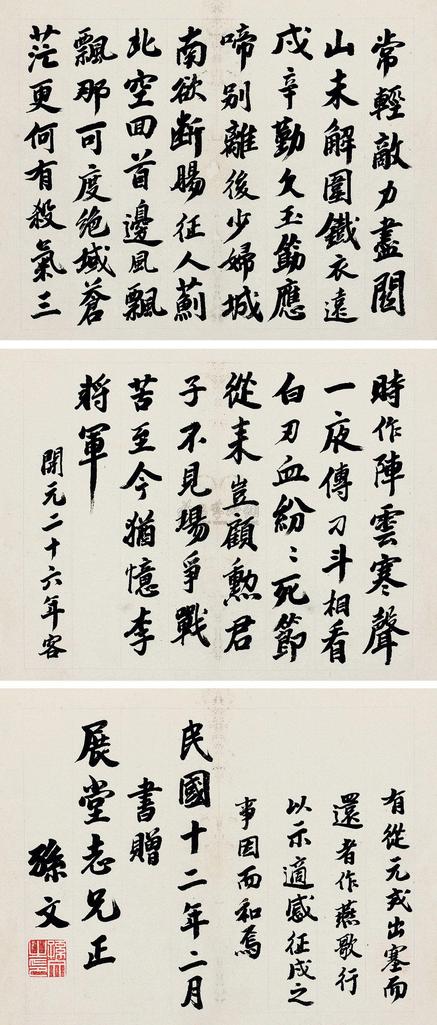 常輕敵力盡關
山未解圍鐵衣遠
戍辛勤久玉筯應
啼别離後少婦城
南欲斷腸征人薊
北空回首邊風飄
飄那可度絶域蒼
茫更何有殺氣三
時作陣雲寒聲
一夜傳刁斗相看
白刃血紛〻死節
從来豈顧勲君
子不見場爭戰
苦至今猶憶李
將軍
開元二十六年客
有從元戎出塞而
還者作燕歌行
以示適感征戍之
事因而和焉
民國十二年二月
書贈
展堂志兄正
孫文